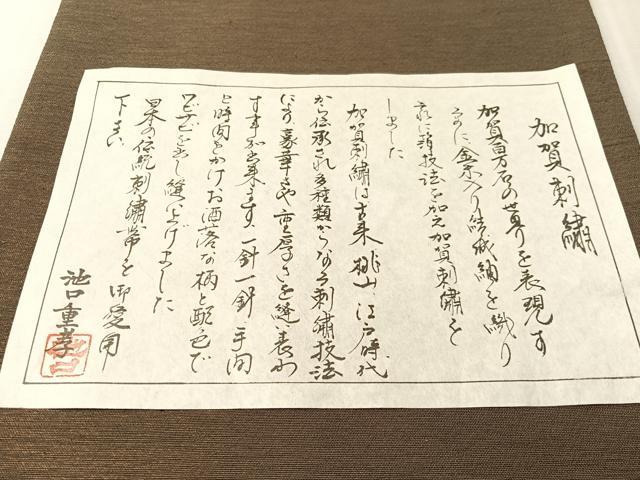 加賀刺繍
加賀百万石の誉りを表現す
に金糸入り結城紬を織り
更に箔技法を加え加賀刺繍を
しました
加賀刺繍は古来桃山、江戸時代
から伝承され多種類からなる刺繍技法
により豪華さや重厚さを縫い表わ
す事が出来ます一針一針に手間
と時間をかけお洒落な柄と配色で
ワビサビを出し縫い上げました
日本の伝統刺繍帯を御愛用
下さい
池口重孝